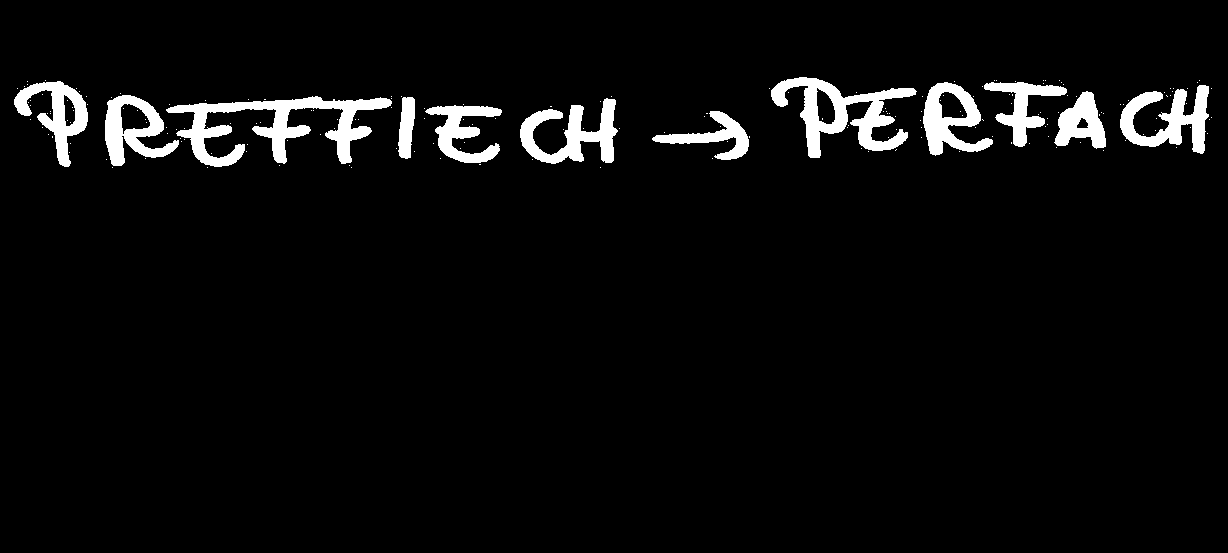 PREFFIECH → PERFACH